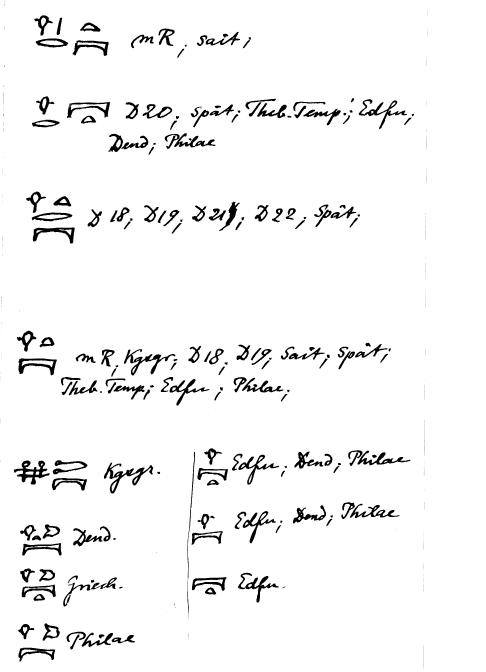 𓁷𓏤𓂋𓏏𓇯 mR, sait;
𓁷𓂋𓇯𓏏 D20, spät; Theb. Temp.; Edfu;
Dend; Philae
𓁷𓏏𓂋𓇯 D18; D19; D21; D22, Spät;
𓁷𓏏𓇯 mR, Kgsgr; D18; D19, Sait; Spät;
Theb. Temp; Edfu; Philae;
Kgsgr.
Dend.
Griech.
Philae
𓁷𓇯𓏏 Edfu; Dend; Philae
𓁷𓇯 Edfu; Dend; Philae
𓇯𓏏 Edfu.